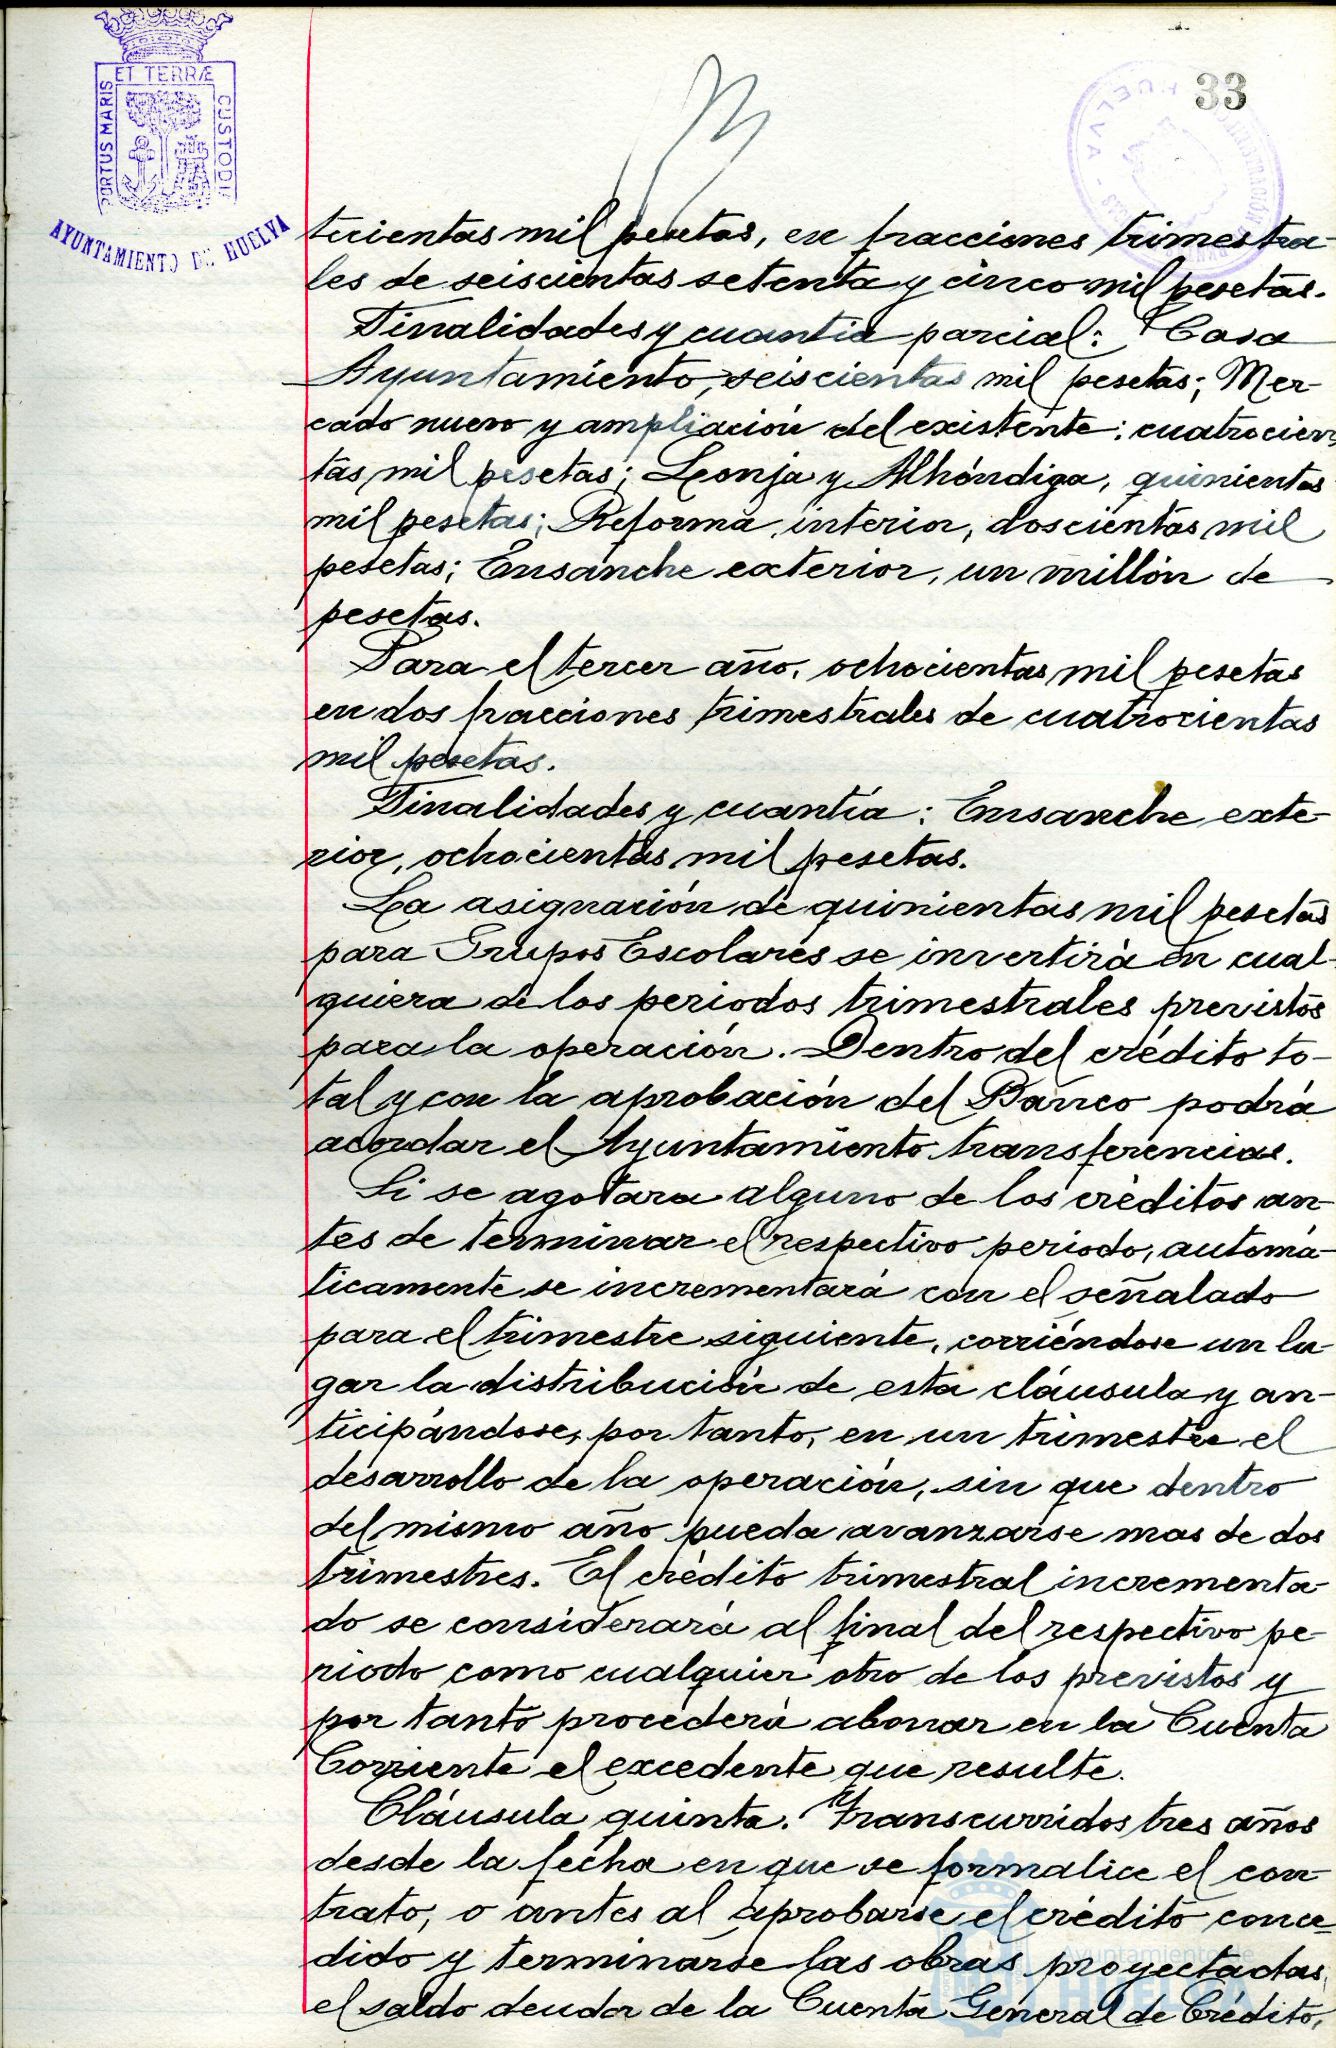 PORTUS MARIS ET TERRÆ CUSTODIA
AYUNTAMIENTO DE HUELVA
33
HUELVA
tecientas mil pesetas, en fracciones trimestra-
les de seiscientas setenta y cinco mil pesetas.
Finalidades y cuantia parcial: Casa
Ayuntamiento, seiscientas mil pesetas; Mer-
cado nuevo y ampliación del existente: cuatrocien-
tas mil pesetas; Lonja y Alhóndiga, quinientas
mil pesetas; Reforma interior, doscientas mil
pesetas; Ensanche exterior, un millón de
pesetas.
Para el tercer año, ochocientas mil pesetas
en dos fracciones trimestrales de cuatrocientas
mil pesetas.
Finalidades y cuantía: Ensanche exte-
rior, ochocientas mil pesetas.
La asignación de quinientas mil pesetas
para Grupos Escolares se invertirá en cual-
quiera de los periodos trimestrales previstos
para la operación. Dentro del crédito to-
tal y con la aprobación del Banco podrá
acordar el Ayuntamiento transferencias.
Si se agotara alguno de los créditos an-
tes de terminar el respectivo periodo, automá-
ticamente se incrementará con el señalado
para el trimestre siguiente, corriéndose un lu-
gar la distribución de esta cláusula y an-
ticipándose, por tanto, en un trimestre el
desarrollo de la operación, sin que dentro
del mismo año pueda avanzarse mas de dos
trimestres. El crédito trimestral incrementa-
do se considerará al final del respectivo pe-
riodo como cualquier otro de los previstos y
por tanto procederá abonar en la Cuenta
Corriente el excedente que resulte.
Cláusula quinta. Transcurridos tres años
desde la fecha en que se formalice el con-
trato, o antes al aprobarse el crédito conce-
dido y terminarse las obras proyectadas,
el saldo deudor de la Cuenta General de Crédito,
Ayuntamiento de
HUELVA